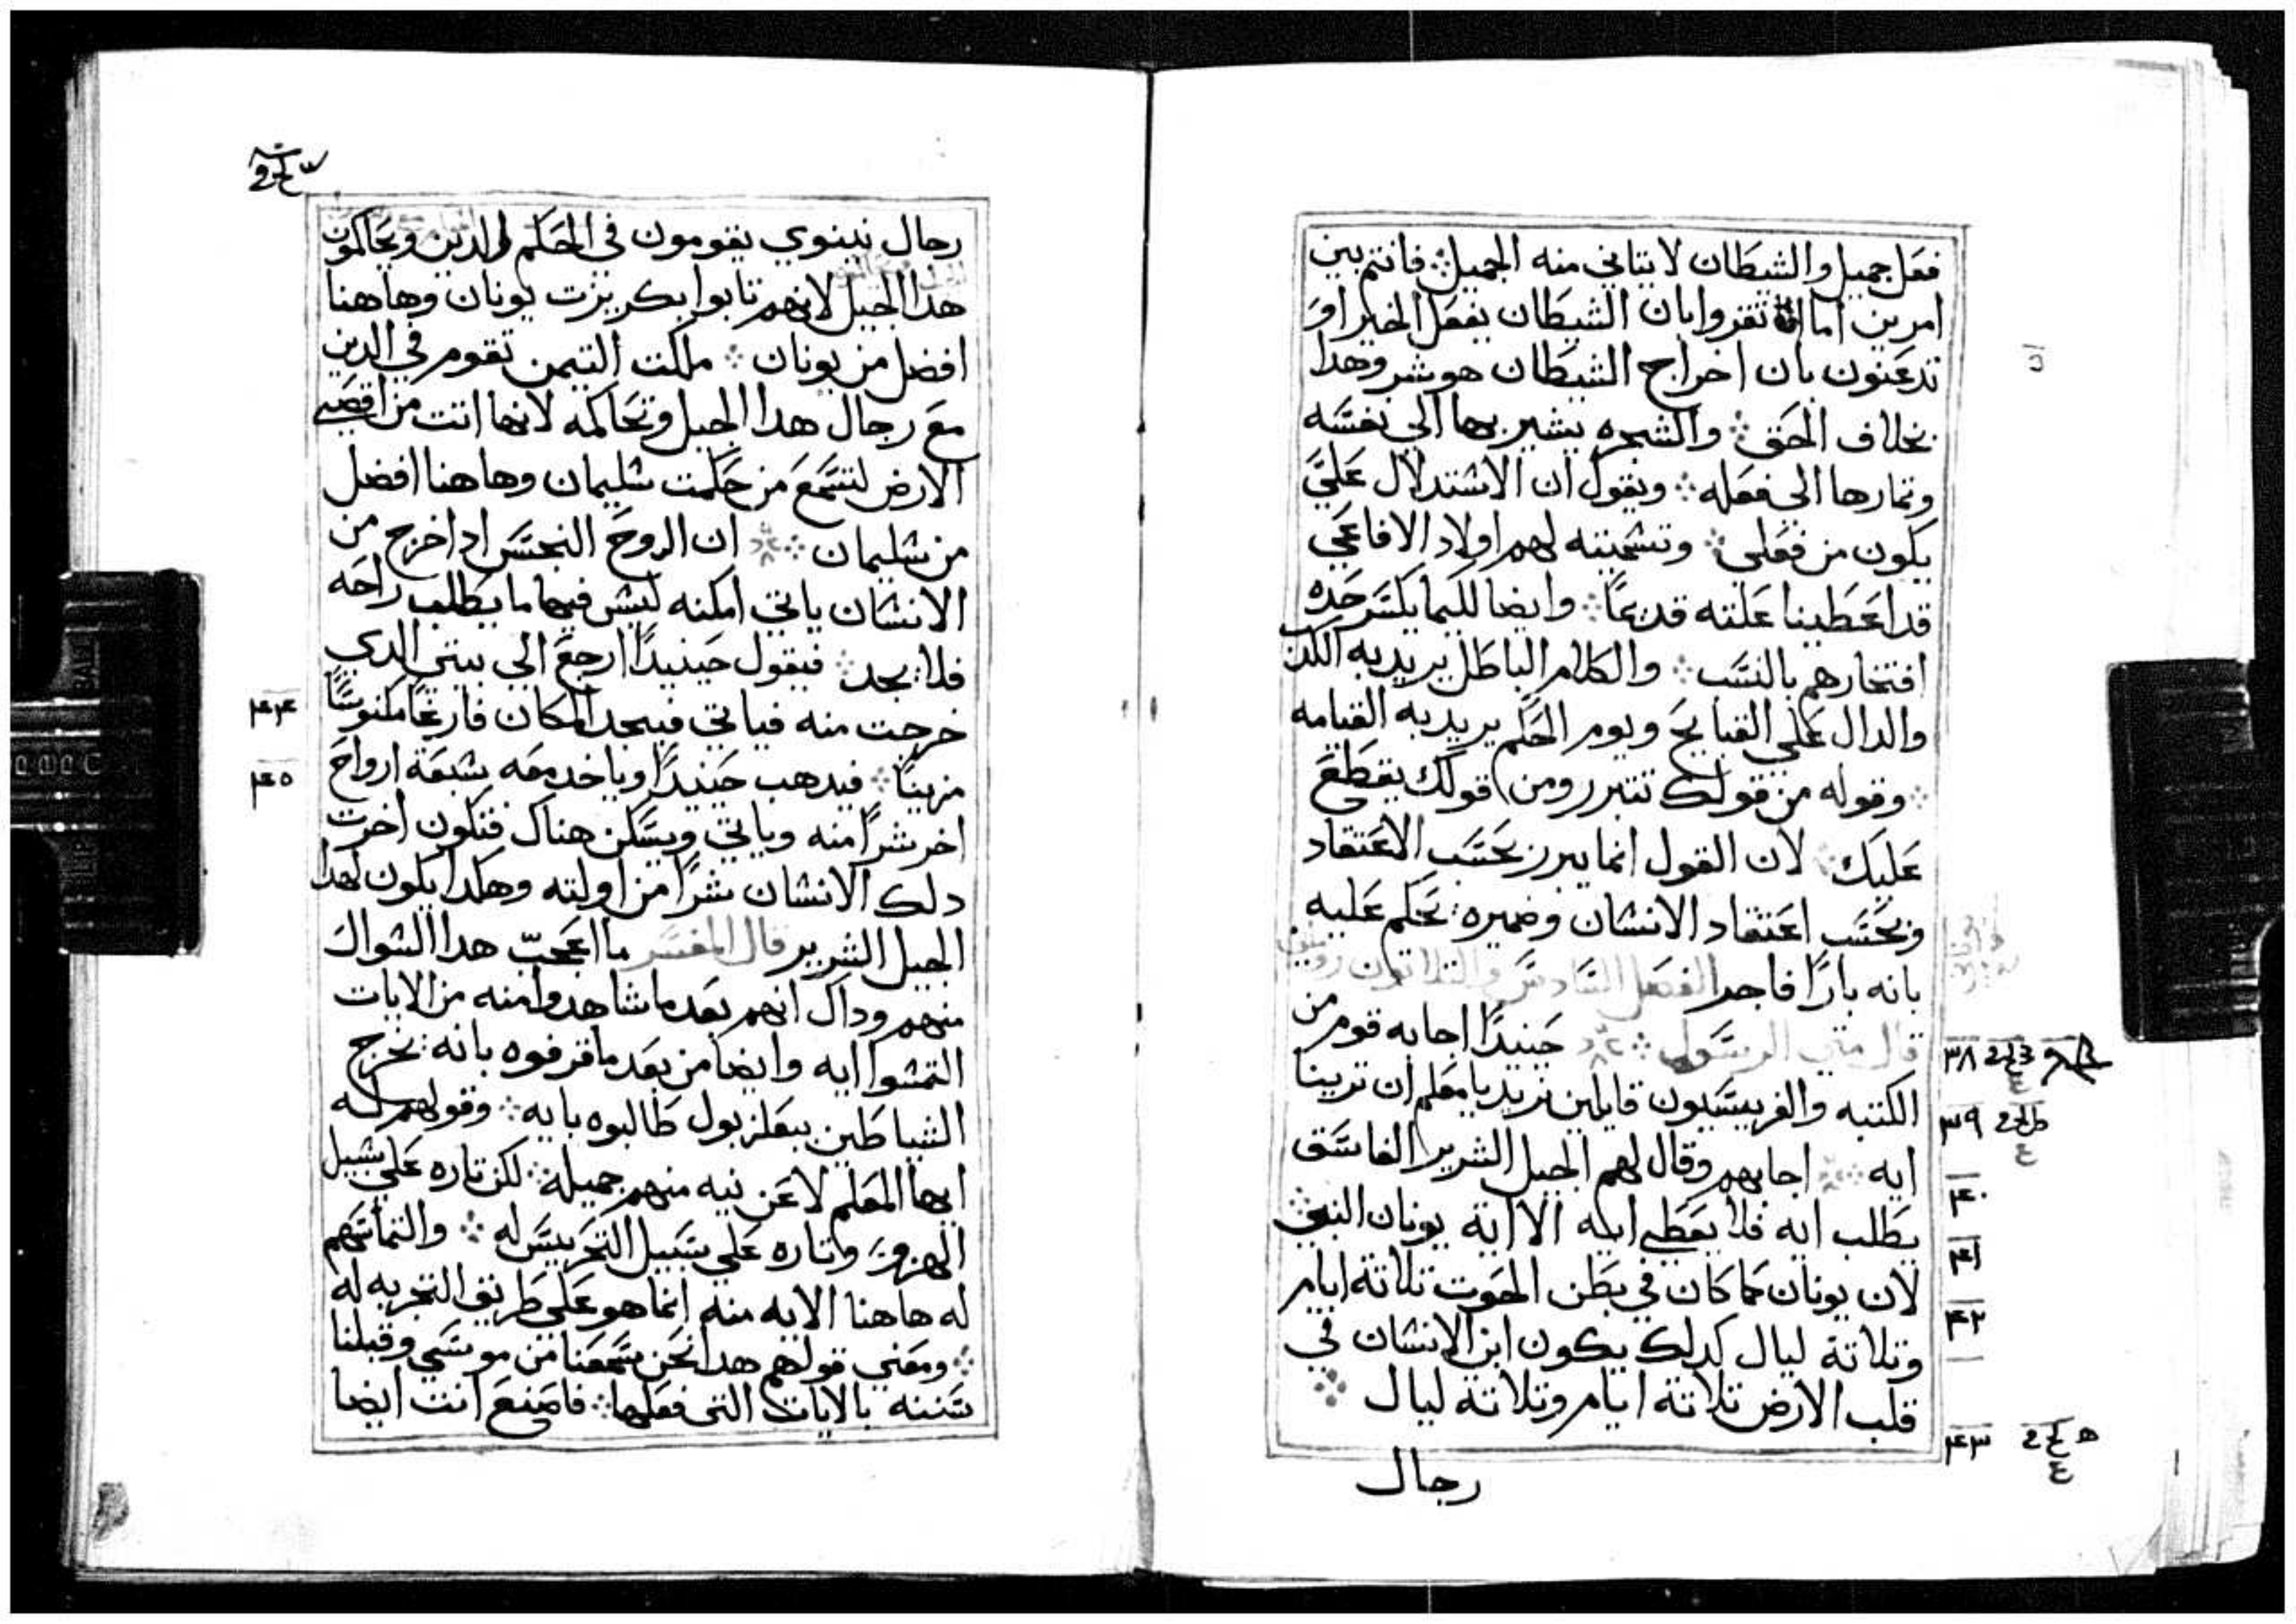 فعل جميل والشيطان لا يتاتي منه الجميل ⁘ فانتم بين
امرين اما ان تقروا بان الشيطان يفعل الخير او
تدعنون بان اخراج الشيطان هو شر وهدا
بخلاف الحق ⁘ والشجره يشير بها الي نفسه
وتمارها الى فعله ⁘ ويقول ان الاستدلال عليّ
يكون من فعلى ⁘ وتسميته لهم اولاد الافاعي
قد اعطينا علته قديمًا ⁘ وايضا لكيما يكسر حده
افتخارهم بالنسب ⁘ والكلام الباطل يريد به الكدب
والدال على القبايح ويوم الحكم يريد به القيامه
⁘ وقوله من قولك تتبرر ومن قولك يقطع
عليك ⁘ لان القول انما يبرز بحسب الاعتقاد
وبحسب اعتقاد الانسان وضميره يحكم عليه
بانه بارًا فاجرا الفصل السادس والتلاتون
قال متي الرسول ⁘ حينيدًا اجابه قوم من
الكتبه والفريسيون قايلين نريد يا معلم ان ترينا
ايه ⁘ اجابهم وقال لهم الجيل الشرير الفاسق
يطلب ايه فلا يعطي ايه الا اية يونان النبي ⁘
لان يونان كما كان في بطن الحوت تلاتة ايام
وتلاتة ليال كدلك يكون ابن الانسان في
قلب الارض تلاتة ايام وتلاته ليال ⁘
رجال
٣٨
٣٩
٤٠
٤١
٤٢
٤٣
رجال نينوي يقومون في الحكم والدين ويحاكمون
هدا الجيل لانهم تابوا بكريزت يونان وهاهنا
افضل من يونان ⁘ ملكت التيمن تقوم في الدين
مع رجال هدا الجيل وتحاكمه لانها اتت من اقصي
الارض لتسمع من حكمت سليمان وهاهنا افضل
من سليمان ⁘ ان الروح النجس ادا خرج من
الانسان ياتي امكنه ليس فيها ما يطلب راحه
فلا يجد ⁘ فيقول حينيدًا ارجع الي بيتي الدي
خرجت منه فياتي فيجد المكان فارغًا مكنوسًا
مزينًا ⁘ فيدهب حينيدًا وياخد معه سبعة ارواح
اخر شرًا منه وياتي ويسكن هناك فتكون اخرت
دلك الانسان شرًا من اولته وهكدا يكون لهدا
الجيل الشرير قال المفسر ما اعجب هدا السوال
منهم وداك انهم بعد ما شاهدوا منه من الايات
التمسوا ايه وايضا من بعد ما قرفوه بانه يخرج
الشياطين ببعلزبول طالبوه بايه ⁘ وقولهم له
ايها المعلم لا عن نيه منهم جميلة ⁘ لكن تاره علي سبيل
الهزو وتاره علي سبيل التخريس له ⁘ والتماسهم
له هاهنا الايه منه انما هو علي طريق التجربه له
⁘ ومعني قولهم هدا نحن سمعنا من موسي وقبلنا
سننه بالايات التي فعلها ⁘ فاصنع انت ايضا
٤٤
٤٥